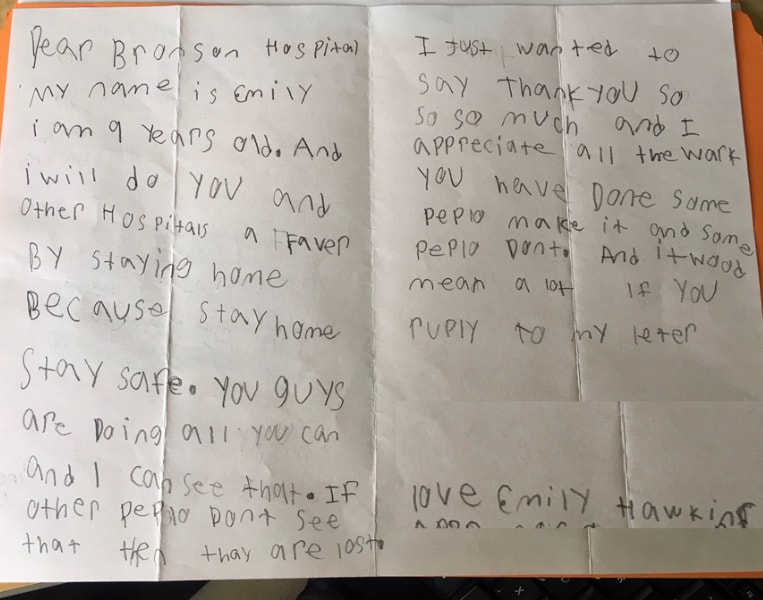 Dear Bronson Hospital
My name is Emily
i am 9 years old. And
i will do you and
other Hospitals a Faver
By staying home
Because stay home
Stay safe. you guys
are Doing all you can
and I can see that. If
other peplo Dont see
that then thay are lost.
I Just wanted to
say thank you so
so so much and I
appreciate all the wark
you have Done some
peplo make it and some
peplo Dont. And it wood
mean a lot If you
ruply to my leter
love Emily Hawkins